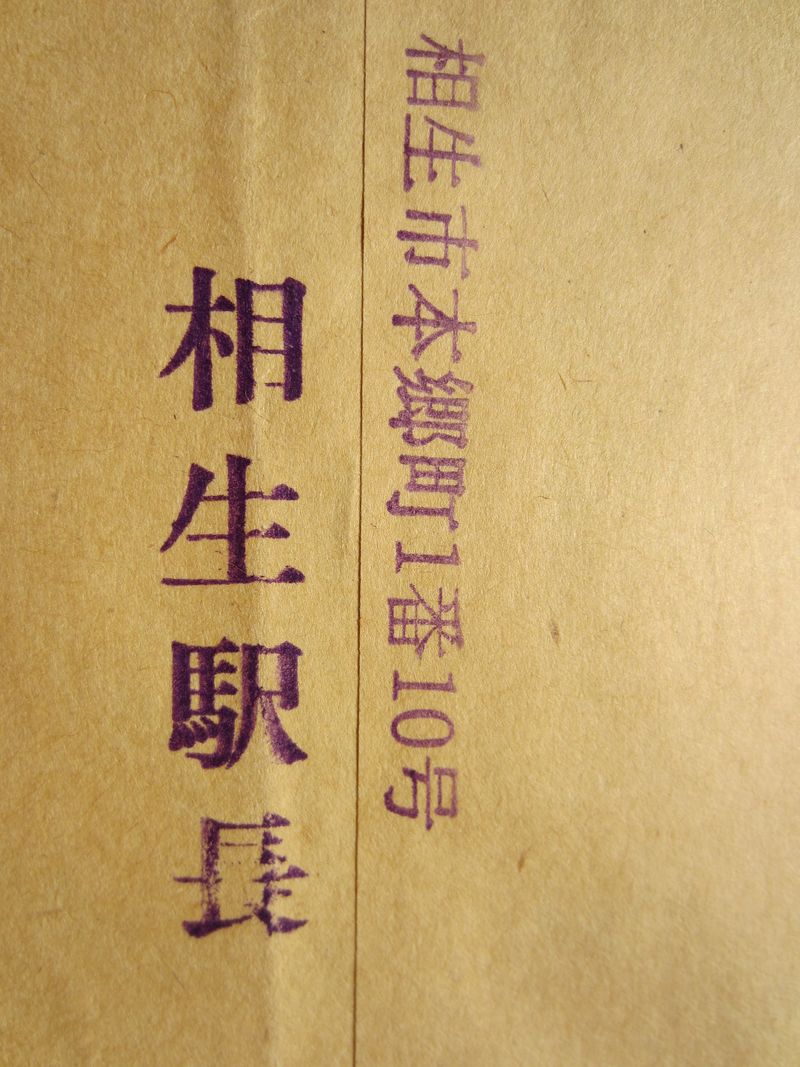 相生市本郷町1番10号
相生駅長